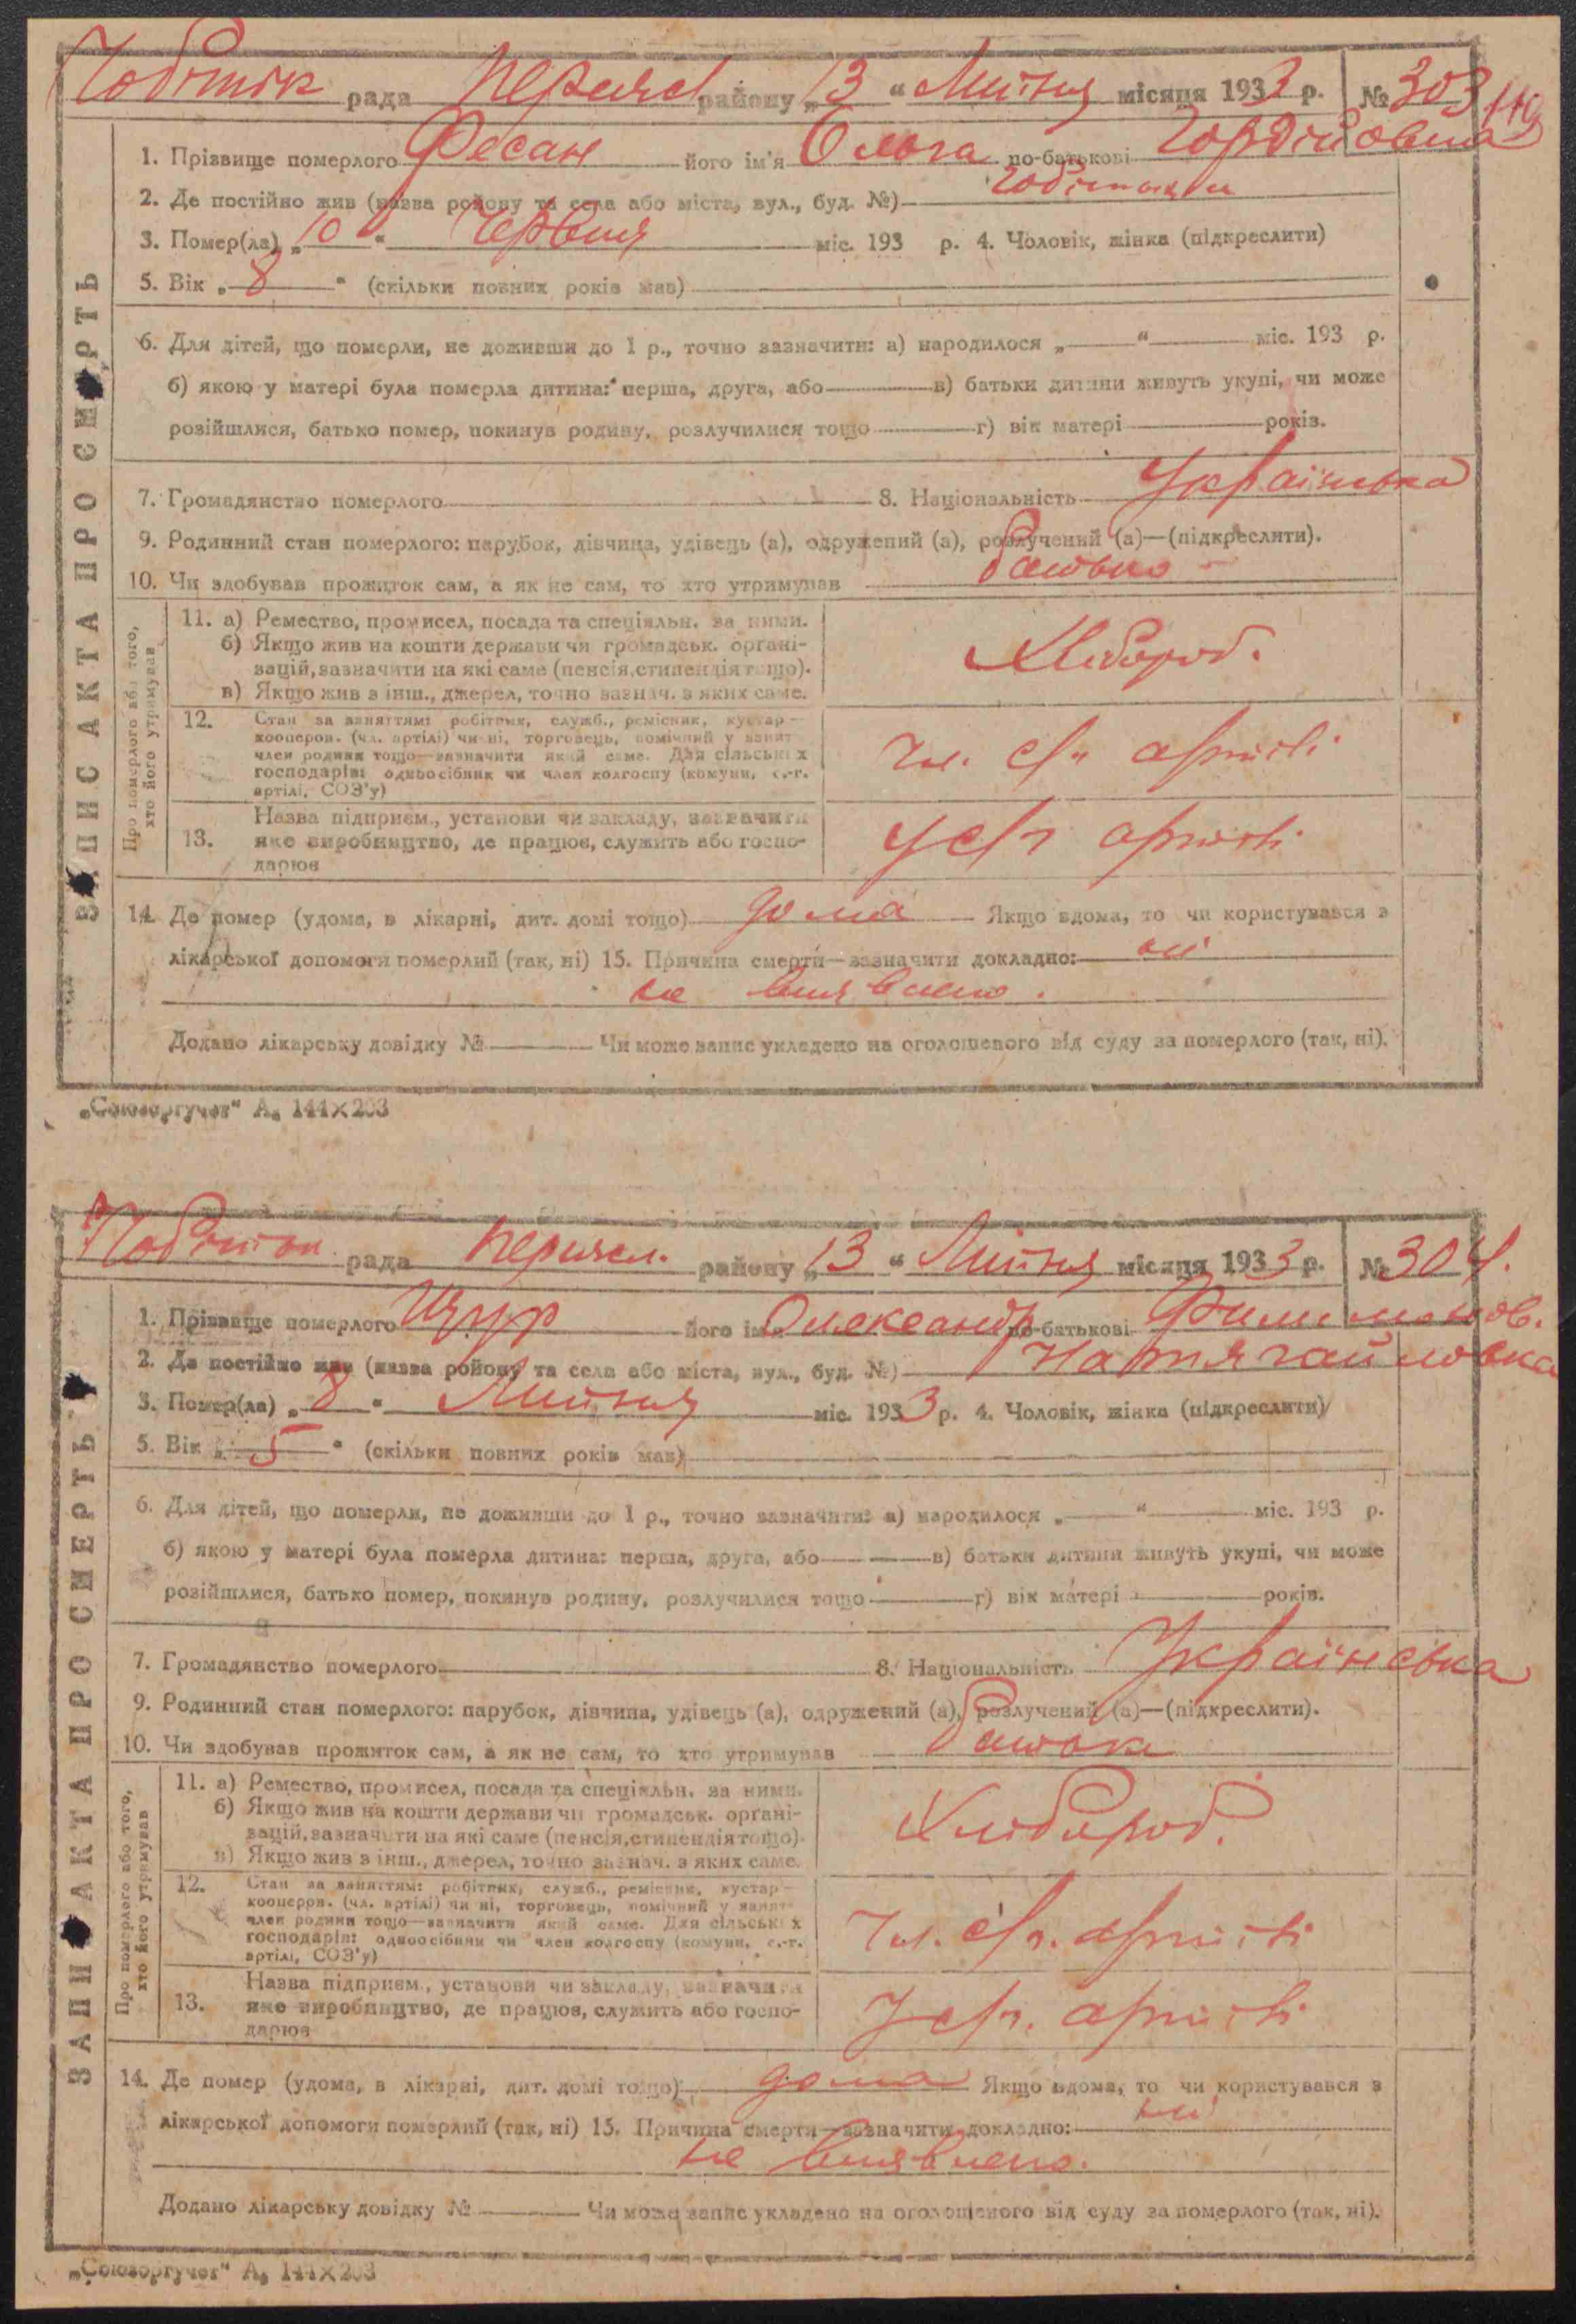 Чобітьк рада Переясл району „13 “ Липня місяця 1933 р. № 303
1. Прізвище померлого Фесан його ім'я Ольга по-батькові Гордійовна
2. Де постійно жив (назва району та села або міста, вул., буд. №)
3. Помер(ла) „10“ Червня міс. 193 р. 4. Чоловік, жінка (підкреслити)
5. Вік „8“ (скільки повних років мав)
6. Для дітей, що померли, не доживши до 1 р., точно зазначити: а) народилося „ “ міс. 193 р.
б) якою у матері була померла дитина: перша, друга, або в) батьки дитини живуть укупі, чи може
розійшлися, батько помер, покинув родину, розлучилися тощо г) вік матері років.
7. Громадянство померлого 8. Національність Українська
9. Родинний стан померлого: парубок, дівчина, удівець (а), одружений (а), розлучений (а)—(підкреслити).
10. Чи здобував прожиток сам, а як не сам, то хто утримував батько
ЗАПИС АКТА ПРО СМЕРТЬ
Про померлого або того,
хто його утримував
11. а) Ремество, промисел, посада та спеціяльн. за ними.
б) Якщо жив на кошти держави чи громадськ. органі-
зацій, зазначити на які саме (пенсія, стипендія тощо).
в) Якщо жив з інш., джерел, точно зазнач. з яких саме.
Хлібороб.
12. Стан за заняттям: робітник, служб., ремісник, кустар—
кооперов. (чл. артілі) чи ні, торговець, помічний у занят
член родини тощо—зазначити який саме. Для сільських
господарів: одноосібник чи член колгоспу (комуни, с.-г.
артілі, СОЗ'у)
Чл. с/г артілі
13. Назва підприєм., установи чи закладу, зазначити
яке виробництво, де працює, служить або госпо-
дарює
У с/г артілі
14. Де помер (удома, в лікарні, дит. домі тощо) дома Якщо вдома, то чи користувався з
лікарської допомоги померлий (так, ні) 15. Причина смерти—зазначити докладно: ні
не виявлено.
Додано лікарську довідку № Чи може запис укладено на оголошеного від суду за померлого (так, ні).
„Союзоргучет“ А₅ 144×203
Чобітьк рада Переясл. району „13 “ Липня місяця 1933 р. № 304.
1. Прізвище померлого Щур його ім'я Олександр по-батькові Филимонов.
2. Де постійно жив (назва району та села або міста, вул., буд. №)
3. Помер(ла) „8“ Липня міс. 1933 р. 4. Чоловік, жінка (підкреслити)
5. Вік „5“ (скільки повних років мав)
6. Для дітей, що померли, не доживши до 1 р., точно зазначити: а) народилося „ “ міс. 193 р.
б) якою у матері була померла дитина: перша, друга, або в) батьки дитини живуть укупі, чи може
розійшлися, батько помер, покинув родину, розлучилися тощо г) вік матері років.
7. Громадянство померлого 8. Національність Українська
9. Родинний стан померлого: парубок, дівчина, удівець (а), одружений (а), розлучений (а)—(підкреслити).
10. Чи здобував прожиток сам, а як не сам, то хто утримував батьки
ЗАПИС АКТА ПРО СМЕРТЬ
Про померлого або того,
хто його утримував
11. а) Ремество, промисел, посада та спеціяльн. за ними.
б) Якщо жив на кошти держави чи громадськ. органі-
зацій, зазначити на які саме (пенсія, стипендія тощо).
в) Якщо жив з інш., джерел, точно зазнач. з яких саме.
Хлібороб.
12. Стан за заняттям: робітник, служб., ремісник, кустар—
кооперов. (чл. артілі) чи ні, торговець, помічний у занят
член родини тощо—зазначити який саме. Для сільських
господарів: одноосібник чи член колгоспу (комуни, с.-г.
артілі, СОЗ'у)
Чл. с/г. артілі
13. Назва підприєм., установи чи закладу, зазначити
яке виробництво, де працює, служить або госпо-
дарює
У с/г. артілі
14. Де помер (удома, в лікарні, дит. домі тощо) дома Якщо вдома, то чи користувався з
лікарської допомоги померлий (так, ні) 15. Причина смерти—зазначити докладно: ні
не виявлено.
Додано лікарську довідку № Чи може запис укладено на оголошеного від суду за померлого (так, ні).
„Союзоргучет“ А₅ 144×203